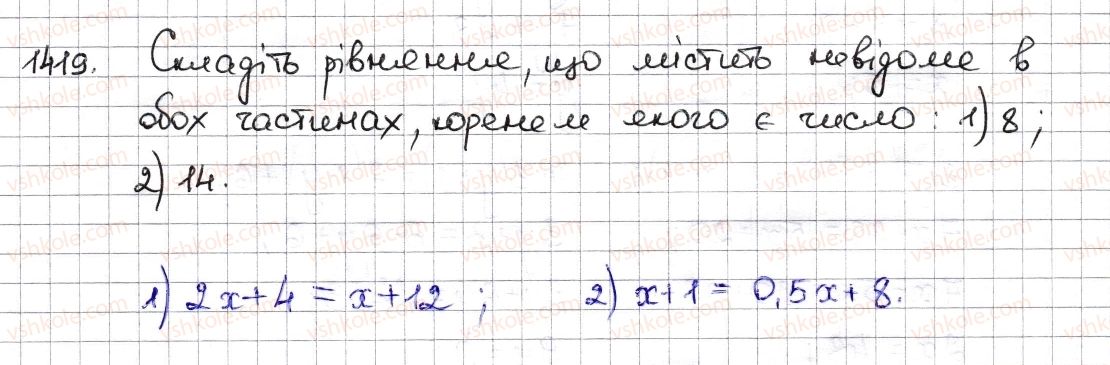 1419. Складіть рівняння, що містить невідоме в
обох частинах, коренем якого є число: 1) 8;
2) 14.
1) 2x+4 = x+12 ; 2) x+1 = 0,5x+8.